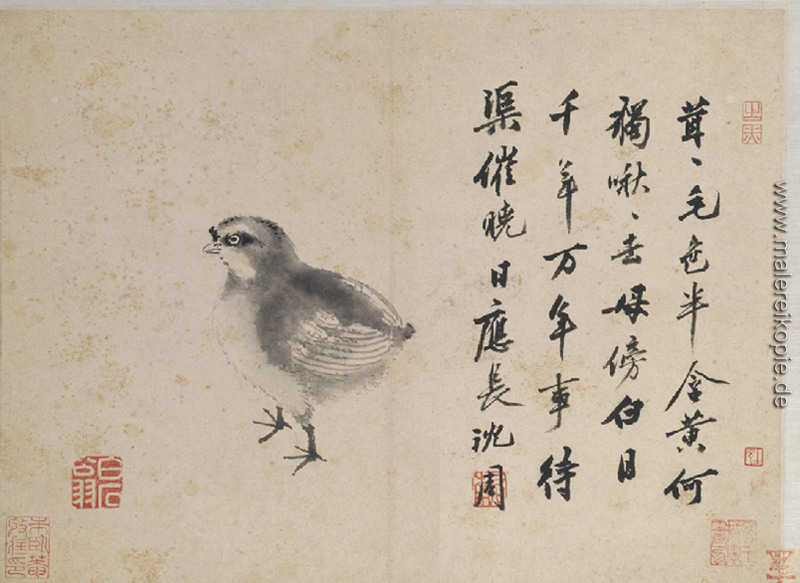 茸〻毛色半含黄何
獨啾〻去母傍白日
千年万年事待
渠催曉日應長沈周
白石翁
www.malereikopie.de